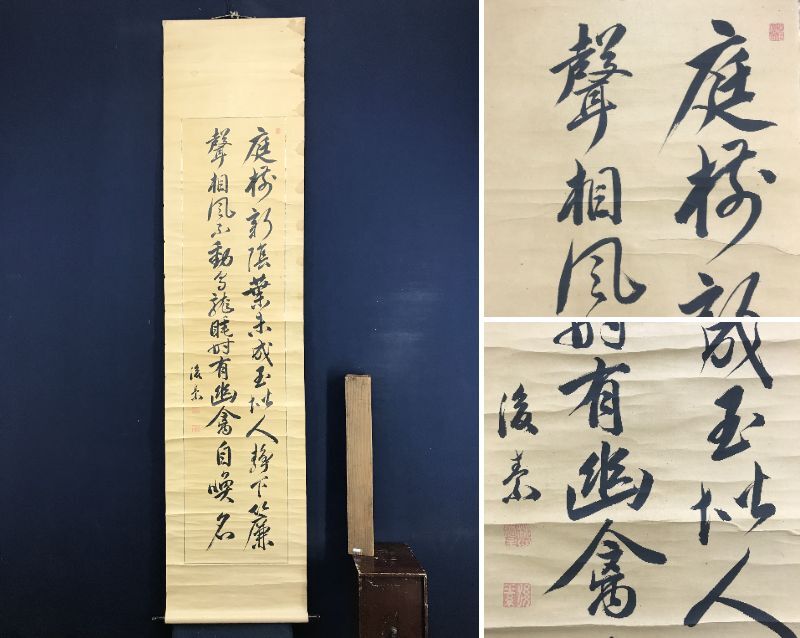 庭樹新陰葉未成玉堦人靜下簾
聲相風不動烏龍睡時有幽禽自喚名
後素
庭樹新
聲相風
成玉堦人
時有幽禽
後素